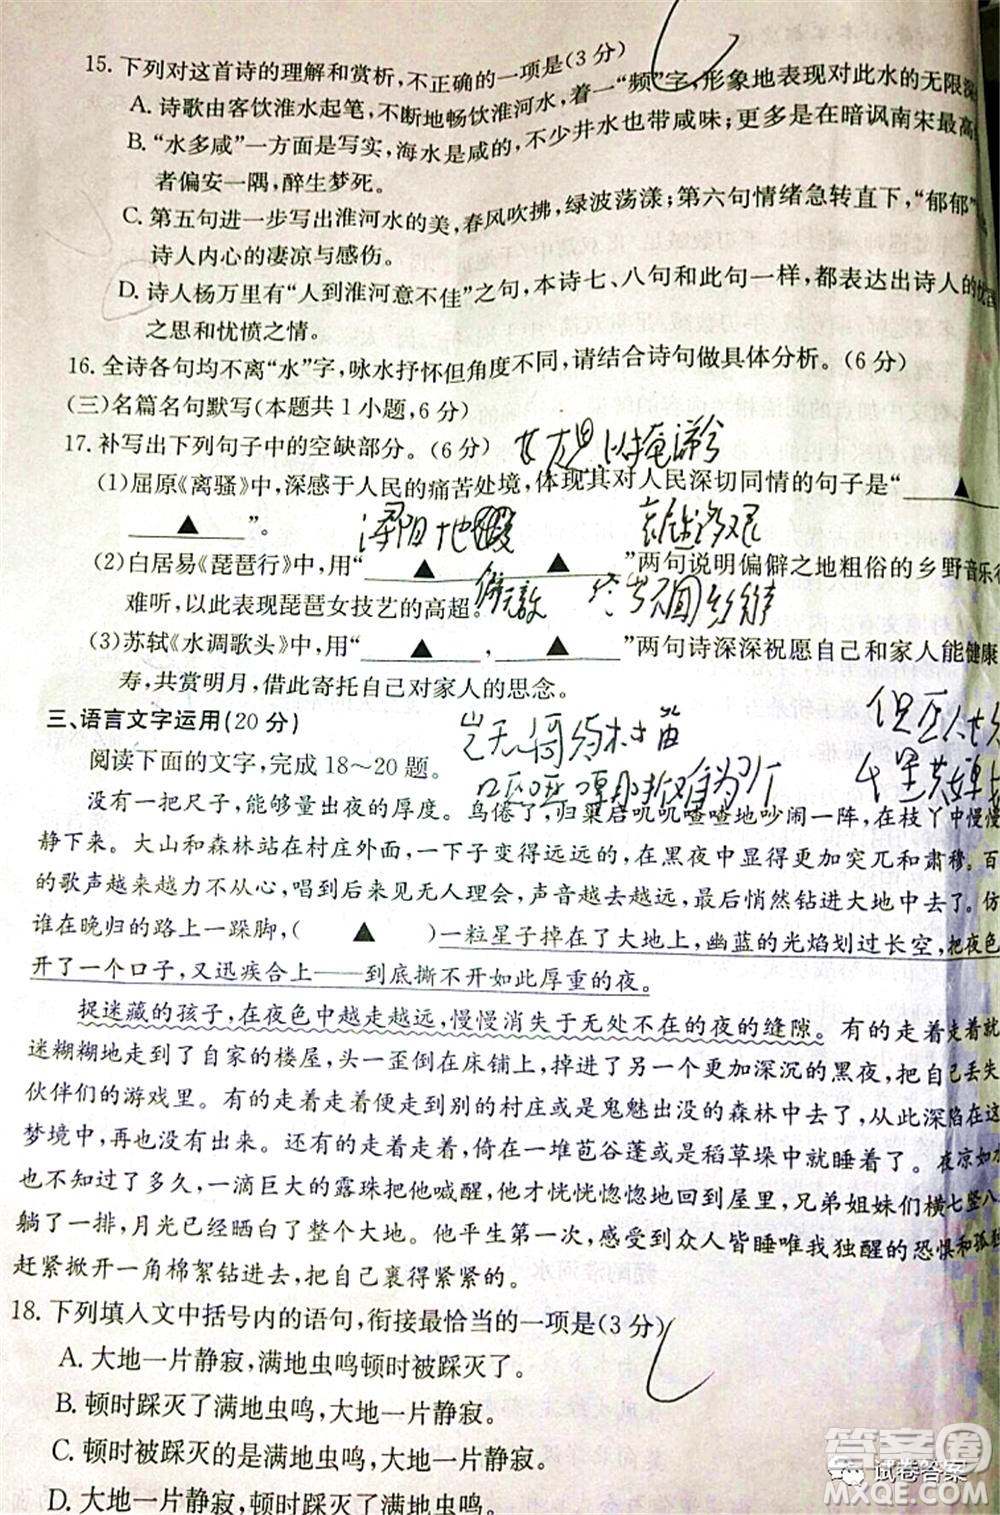 15. 下列对这首诗的理解和赏析，不正确的一项是(3分)
A. 诗歌由客饮淮水起笔，不断地畅饮淮河水，着一“频”字，形象地表现对此水的无限深
B. “水多咸”一方面是写实，海水是咸的，不少井水也带咸味；更多是在暗讽南宋最高
者偏安一隅，醉生梦死。
C. 第五句进一步写出淮河水的美，春风吹拂，绿波荡漾；第六句情绪急转直下，“郁郁”
诗人内心的凄凉与感伤。
D. 诗人杨万里有“人到淮河意不佳”之句，本诗七、八句和此句一样，都表达出诗人的忧
之思和忧愤之情。
16. 全诗各句均不离“水”字，咏水抒怀但角度不同，请结合诗句做具体分析。(6分)
(三)名篇名句默写(本题共1小题，6分)
17. 补写出下列句子中的空缺部分。(6分)
(1)屈原《离骚》中，深感于人民的痛苦处境，体现其对人民深切同情的句子是“
▲ ”。
(2)白居易《琵琶行》中，用“ ▲ ， ▲ ”两句说明偏僻之地粗俗的乡野音乐
难听，以此表现琵琶女技艺的高超。
(3)苏轼《水调歌头》中，用“ ▲ ， ▲ ”两句诗深深祝愿自己和家人能健康
寿，共赏明月，借此寄托自己对家人的思念。
三、语言文字运用(20分)
岂无山歌与村笛
阅读下面的文字，完成18～20题。
没有一把尺子，能够量出夜的厚度。鸟倦了，归巢后叽叽喳喳地吵闹一阵，在枝丫中慢慢
静下来。大山和森林站在村庄外面，一下子变得远远的，在黑夜中显得更加突兀和肃穆。百
的歌声越来越力不从心，唱到后来见无人理会，声音越去越远，最后悄然钻进大地中去了。仿
谁在晚归的路上一跺脚，( ▲ )一粒星子掉在了大地上，幽蓝的光焰划过长空，把夜色
开了一个口子，又迅疾合上——到底撕不开如此厚重的夜。
捉迷藏的孩子，在夜色中越走越远，慢慢消失于无处不在的夜的缝隙。有的走着走着就
迷糊糊地走到了自家的楼屋，头一歪倒在床铺上，掉进了更加深沉的黑夜，把自己丢失
伙伴们的游戏里。有的走着走着便走到别的村庄或是鬼魅出没的森林中去了，从此深陷在这
梦境中，再也没有出来。还有的走着走着，倚在一堆苞谷蓬或是稻草垛中就睡着了。夜凉如水
也不知过了多久，一滴巨大的露珠把他喊醒，他才恍恍惚惚地回到屋里，兄弟姐妹们横七竖八
躺了一排，月光已经晒白了整个大地。他平生第一次，感受到众人皆睡唯我独醒的恐惧和孤独
赶紧掀开一角棉絮钻进去，把自己裹得紧紧的。
18. 下列填入文中括号内的语句，衔接最恰当的一项是(3分)
A. 大地一片静寂，满地虫鸣顿时被踩灭了。
B. 顿时踩灭了满地虫鸣，大地一片静寂。
C. 顿时被踩灭的是满地虫鸣，大地一片静寂。
D. 大地一片静寂，顿时踩灭了满地虫鸣。
答案圈
试卷答案
MXQE.COM